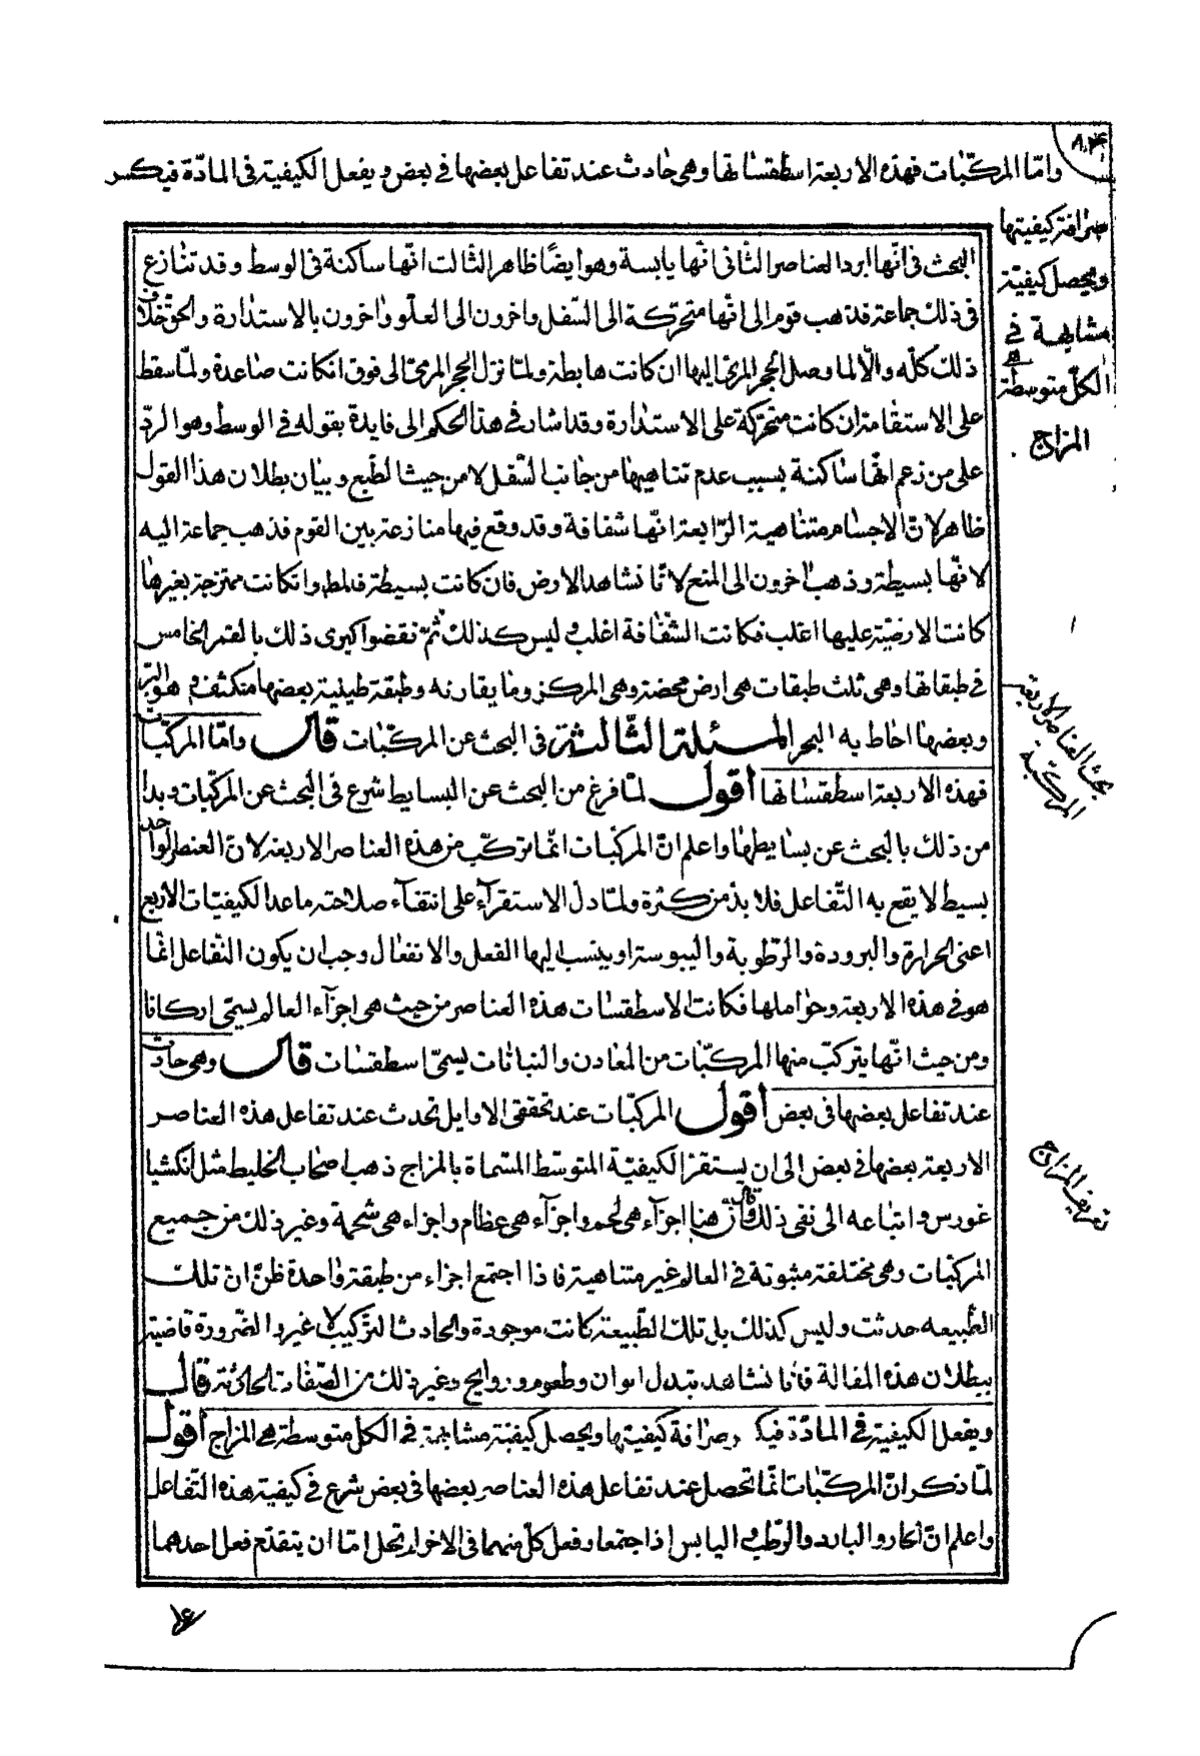 وامّا المركّبات فهذه الاربعة اسطقسّاتها وهي حادث عند تفاعل بعضها في بعض ويفعل الكيفية في المادّة فيكسر
صرافة كيفيتها
ويحصل كيفيّة
مشابهة في
الكلّ متوسّطة هي
المزاج .
البحث في انّها ابرد العناصر الثاني انّها يابسة وهو ايضًا ظاهر الثالث انّها ساكنة في الوسط وقد تنازع
في ذلك جماعة فذهب قوم الى انّها متحركة الى السّفل واخرون الى العلّو واخرون بالاستدارة والحق خلاف
ذلك كلّه والّا لما وصل الحجر المرميّ اليها ان كانت هابطة ولمّا نزل الحجر المرميّ الى فوق انكانت صاعدة ولمّا سقط
على الاستقامة ان كانت متحركة على الاستدارة وقد اشار في هذا الحكم الى فايدة بقوله في الوسط وهو الردّ
على من زعم انّها ساكنة بسبب عدم تناهيها من جانب السّفل لا من حيث الطّبع وبيان بطلان هذا القول
ظاهر لانّ الاجسام متناهية الرّابعة انّها شفافة وقد وقع فيها منازعة بين القوم فذهب جماعة اليه
لانّها بسيطة وذهب اخرون الى المنع لانّا نشاهد الارض فان كانت بسيطة فالمط وانكانت ممتزجة بغيرها
كانت الارضيّة عليها اغلب فكانت الشفّافة اغلب وليس كذلك ثمّ نقضوا كبرى ذلك بالقمر الخامس
في طبقاتها وهي ثلث طبقات هي ارض محضة وهي المركز وما يقاربه وطبقة طينية بعضها منكشف وهو البرّ
وبعضها احاط به البحر المسئلة الثّالثة في البحث عن المركّبات قال وامّا المركّبات
فهذه الاربعة اسطقسّاتها أقول لمّا فرغ من البحث عن البسايط شرع في البحث عن المركّبات وبدا
من ذلك بالبحث عن بسايطها واعلم انّ المركّبات انّما تركّب من هذه العناصر الاربعة لانّ العنصر الواحد
بسيط لا يقع به التّفاعل فلا بدّ من كثرة ولمّا دلّ الاستقرآء على انتفآء صلاحية ما عدا الكيفيّات الاربع
اعني الحرارة والبرودة والرّطوبة واليبوسة او ينسب اليها الفعل والانفعال وجب ان يكون التّفاعل انّما
هو في هذه الاربعة وحواملها فكانت الاسطقسّات هذه العناصر من حيث هي اجزآء العالم يسمّى اركانا
ومن حيث انّها يتركّب منها المركّبات من المعادن والنباتات يسمّى اسطقسّات قال وهي حادث
عند تفاعل بعضها في بعض أقول المركّبات عند محققي الاوايل تحدث عند تفاعل هذه العناصر
الاربعة بعضها في بعض الى ان يستقرّ الكيفيّة المتوسّطة المسّماة بالمزاج ذهب اصحاب الخليط مثل انكشيا
غورس واتباعه الى نفى ذلك وقال انّ هنا اجزآء هي لحم واجزآء هي عظام واجزاء هي شحمة وغير ذلك من جميع
المركّبات وهي مختلفة مبثوثة في العالم غير متناهية فاذا اجتمع اجزاء من طبقة واحدة ظنّ انّ تلك
الطّبيعه حدثت وليس كذلك بل تلك الطّبيعة كانت موجودة والحادث التركيب لا غير والضّرورة قاضية
ببطلان هذه المقالة فانّا نشاهد تبدل الوان وطعوم وروايح وغير ذلك من الصّفات الحادثة قال
ويفعل الكيفية في المادّة فيكسر صرافة كيفيتها ويحصل كيفيّة مشابهة في الكلّ متوسّطة هي المزاج أقول
لمّا ذكر انّ المركّبات انّما تحصل عند تفاعل هذه العناصر بعضها في بعض شرع في كيفية هذه التّفاعل
واعلم انّ الحار والبارد والرّطب واليابس اذا اجتمعا وفعل كلّ منهما في الاخر لم تحل امّا ان يتقدّم فعل احدهما
بحث العناصر الاربعة
المركبة
تعريف المزاج